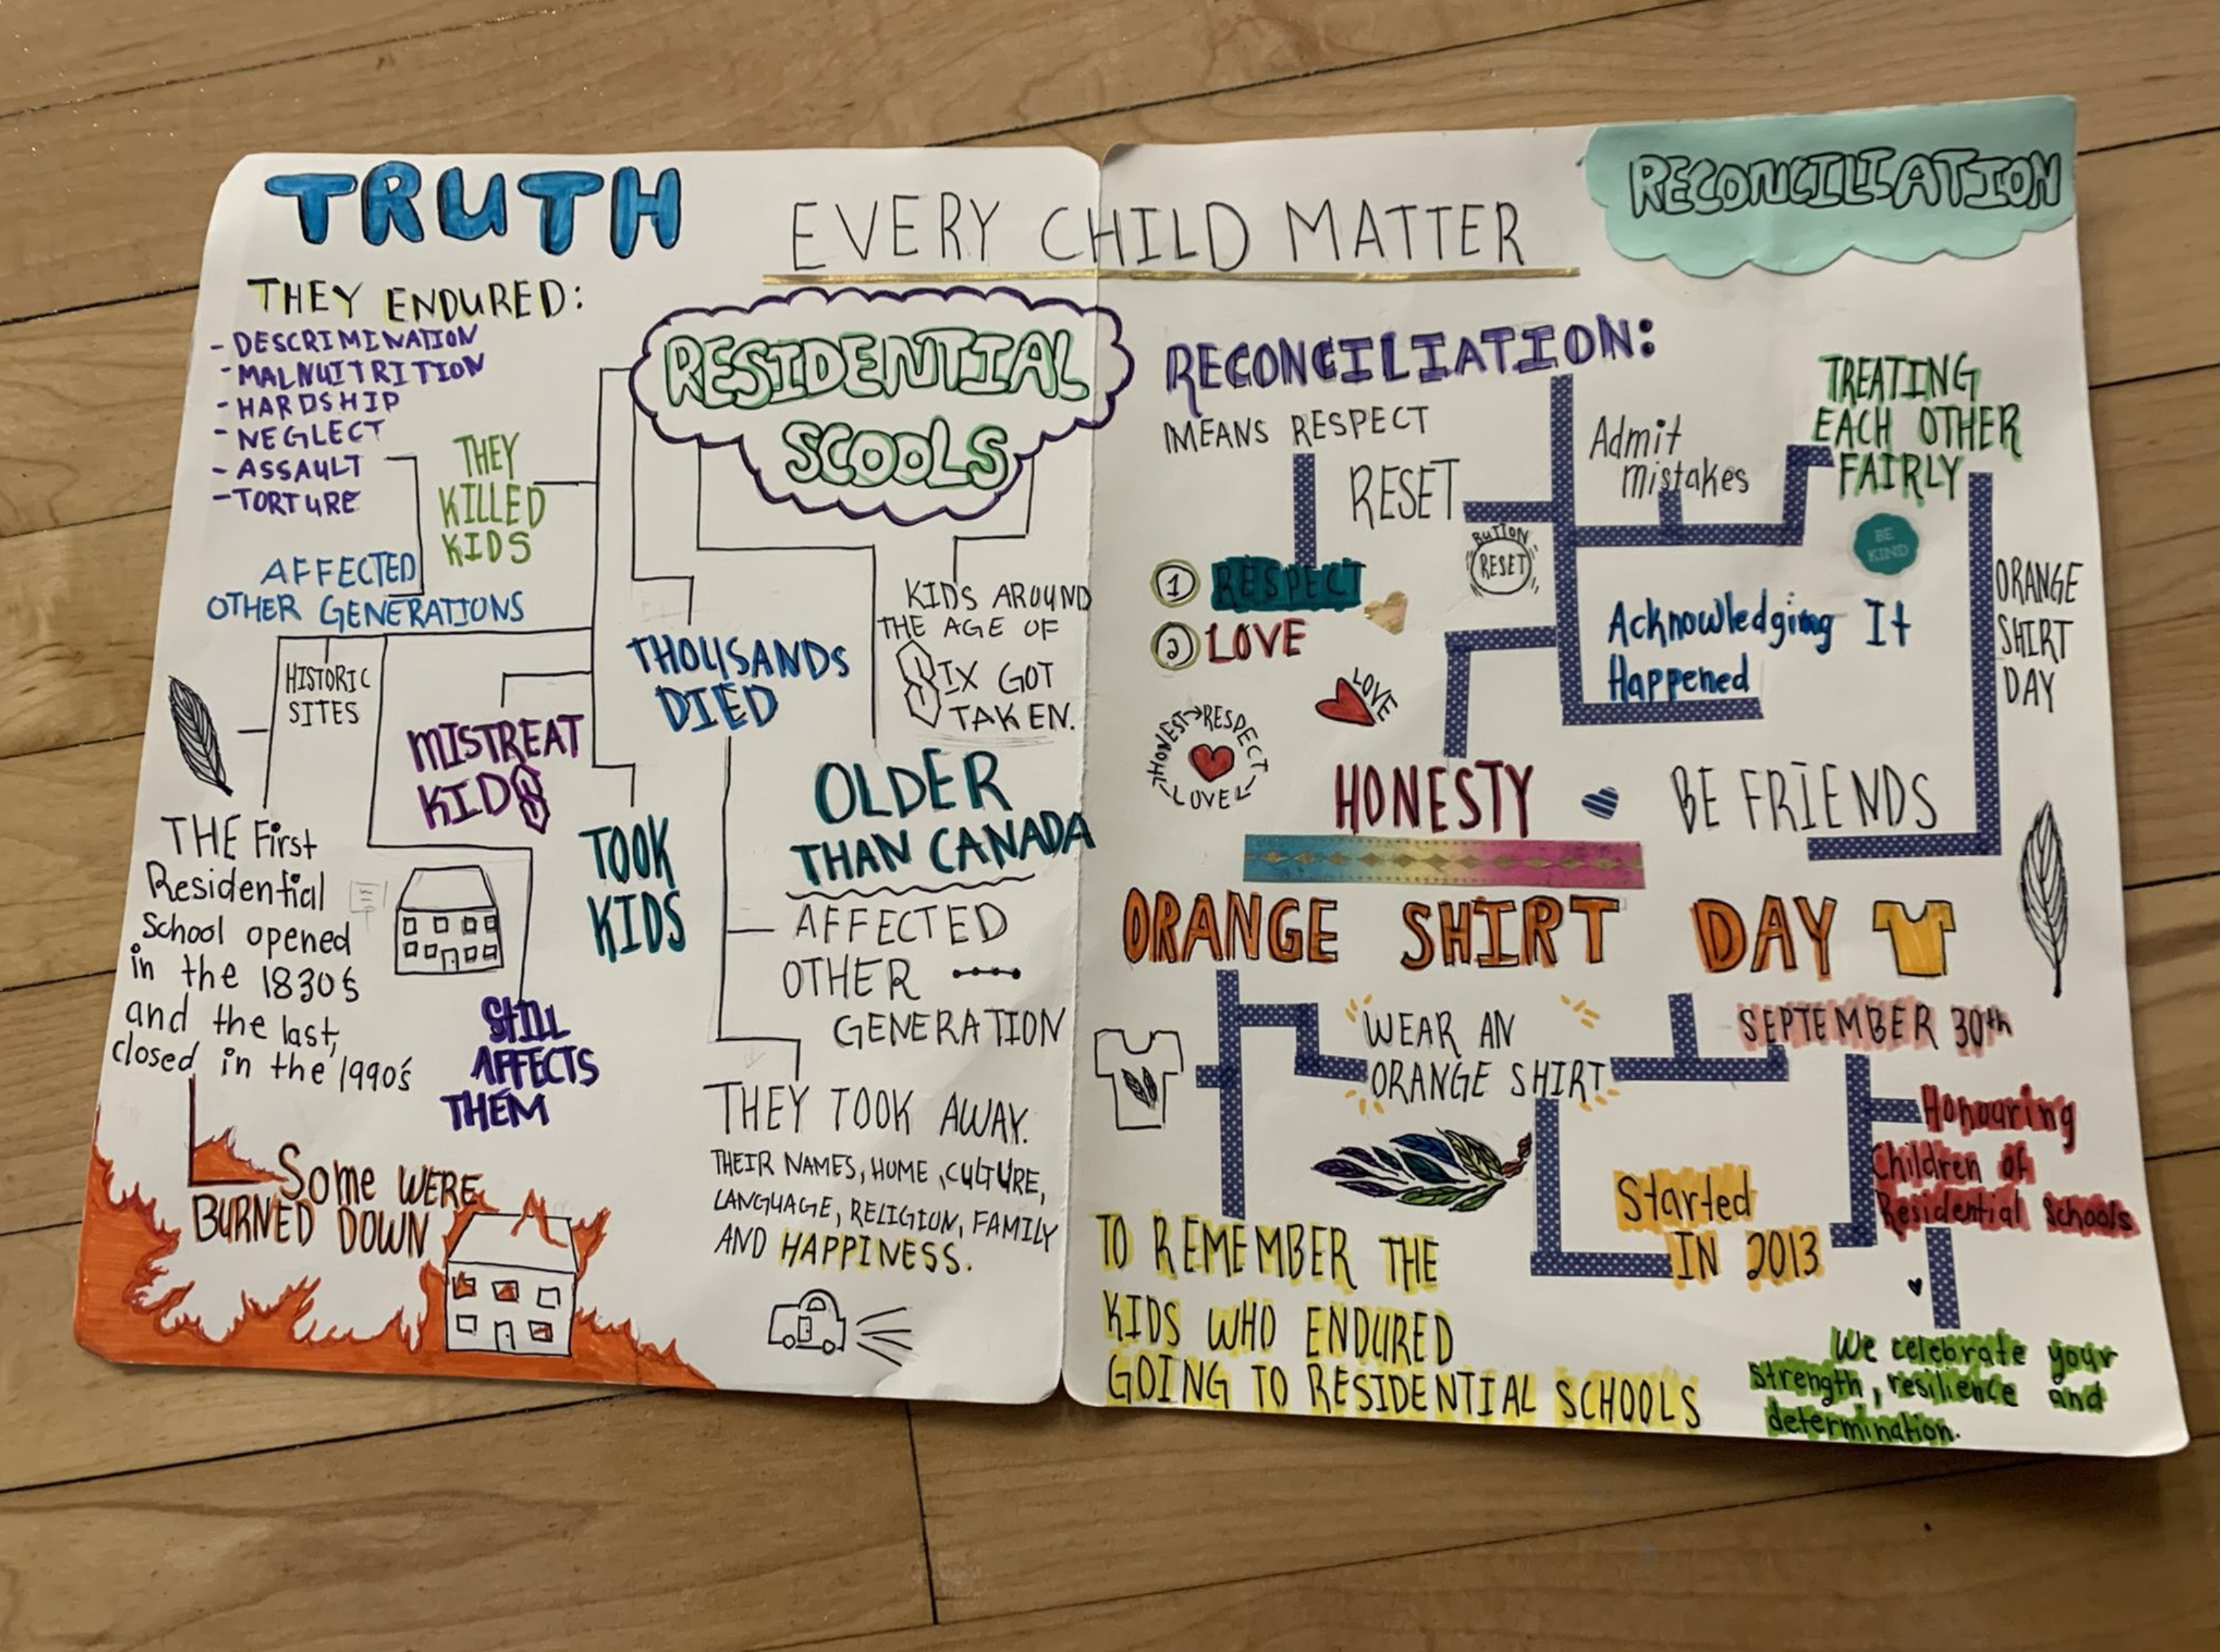 TRUTH
EVERY CHILD MATTER
RECONCILIATION
THEY ENDURED:
- DESCRIMINATION
- MALNUITRITION
- HARDSHIP
- NEGLECT
- ASSAULT
- TORTURE
THEY
KILLED
KIDS
AFFECTED
OTHER GENERATIONS
RESIDENTIAL
SCOOLS
HISTORIC
SITES
MISTREAT
KIDS
THOUSANDS
DIED
KIDS AROUND
THE AGE OF
SIX GOT
TAKEN.
THE First
Residential
School opened
in the 1830s
and the last,
closed in the 1990's
TOOK
KIDS
OLDER
THAN CANADA
AFFECTED
OTHER
GENERATION
STILL
AFFECTS
THEM
Some WERE
BURNED DOWN
THEY TOOK AWAY.
THEIR NAMES, HOME, CULTURE,
LANGUAGE, RELIGION, FAMILY
AND HAPPINESS.
RECONCILIATION:
MEANS RESPECT
RESET
BUTTON
RESET
Admit
mistakes
TREATING
EACH OTHER
FAIRLY
BE
KIND
ORANGE
SHIRT
DAY
1 RESPECT
2 LOVE
LOVE
HONEST RESPECT
LOVE
Acknowledging It
Happened
HONESTY
BE FRIENDS
ORANGE SHIRT DAY
WEAR AN
ORANGE SHIRT
SEPTEMBER 30th
Honouring
Children of
Residential Schools
Started
IN 2013
TO REMEMBER THE
KIDS WHO ENDURED
GOING TO RESIDENTIAL SCHOOLS
We celebrate your
strength, resilience and
determination.